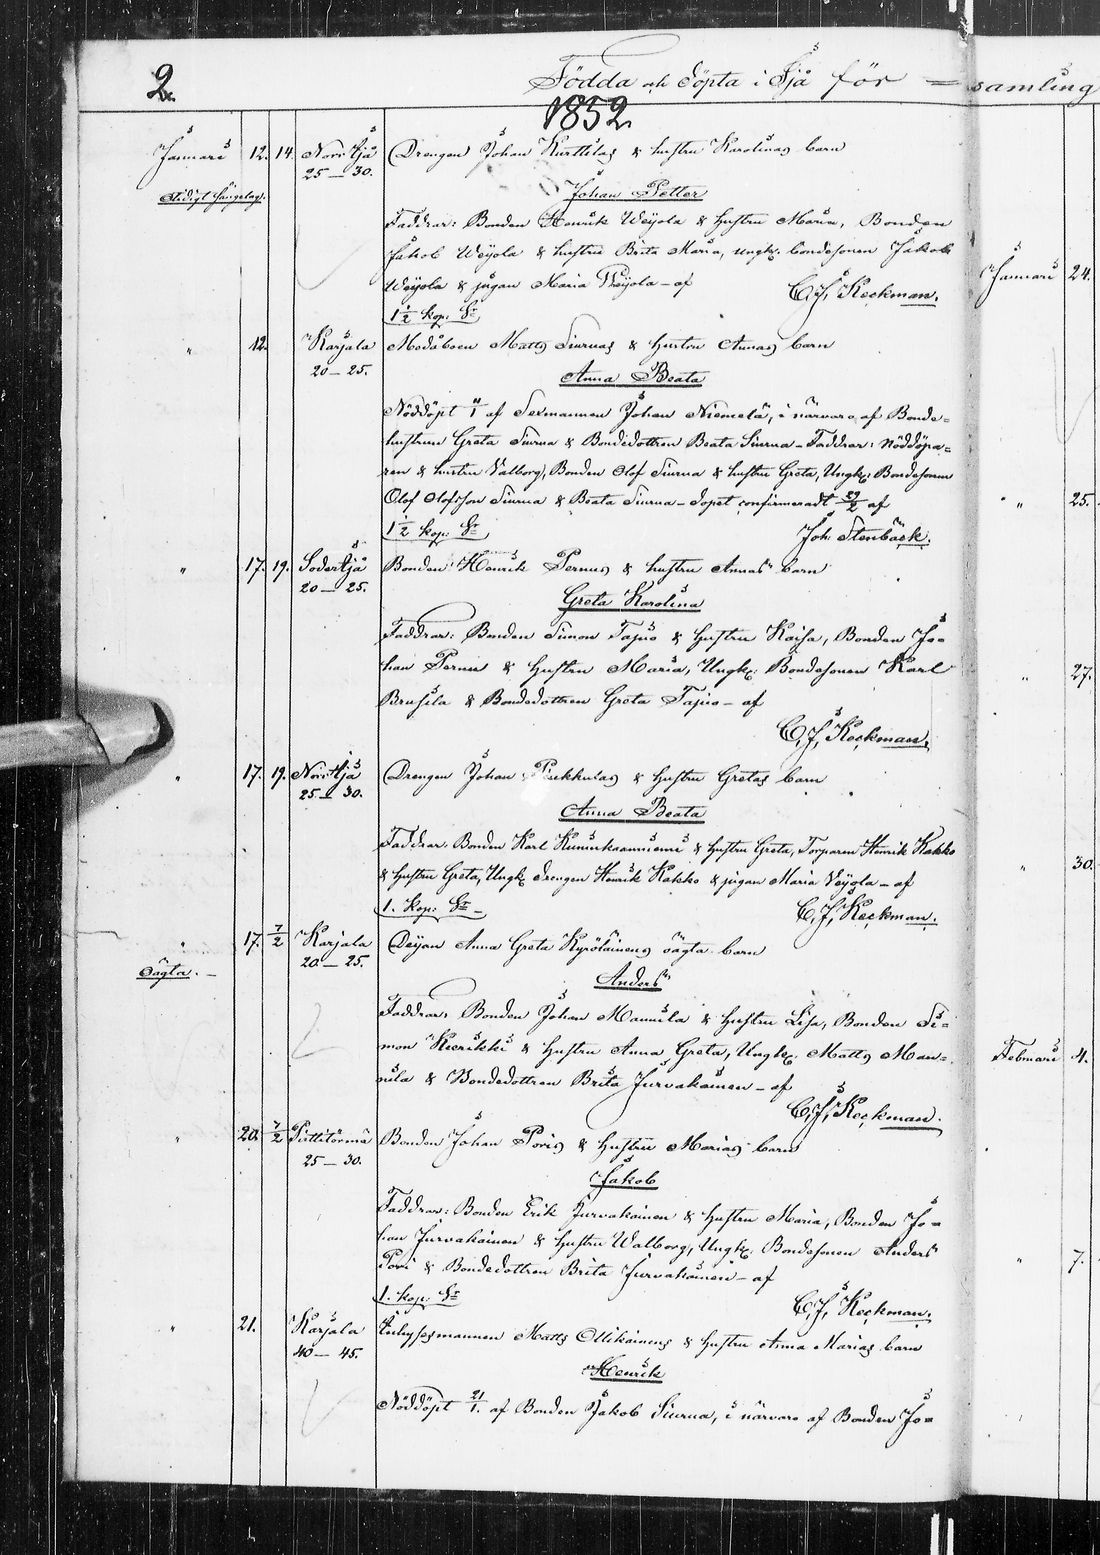 2.
Födda och döpta i Ijå för = samling
1852.
Januari 12. 14. Norr Ijå Drengen Johan Kurttilas & hustru Karolinas barn
25 — 30.
Johan Petter
Faddrar: Bonden Henrik Weijola & Hustru Maria, Bonden
Jakob Weijola & hustru Brita Maria, ungk. bondesonen Jakob
Weijola & pigan Maria Weijola – af
C. J. Keckman.
1 1/2 kop. Sr
" 12. Karjala Matts Siuruas & Hustru Annas barn
20 — 25.
Anna Beata
Nöddöpt af Sexmannen Johan Niemelä, i närvaro af Bonde-
hustrun Greta Siurua & Bondedottren Beata Siurua – Faddrar: Nöddöpa-
ren & hustru Valborg, Bonden Olof Siurua & hustru Greta, Ungk: Bondesonen
Olof Olofsson Siurua & Beata Siurua – dopet confirmeradt af
1 1/2 kop. Sr
Joh. Stenbäck.
" 17. 19. Söder Ijå Bonden Henrik Pernus & hustru Annas barn
20 — 25.
Greta Karolina
Faddrar: Bonden Simon Tapio & Hustru Kaisa, Bonden Jo-
han Pernu & Hustru Maria, Ungk. Bondesonen Karl
Brusila & Bondedottren Greta Tapio – af
C. J. Keckman.
" 17. 19. Norr Ijå Drengen Johan & Hustru Gretas barn
25 — 30.
Anna Beata
Faddrar: Bonden Karl & Hustru Greta, Torparen Henrik Kakko
& Hustru Greta, Ungk. drengen Henrik Kakko & pigan Maria Veijola – af
1. kop. Sr –
C. J. Keckman.
" 17. 7/2 Karjala Deijan Anna Greta Kyröläinens oägta barn
20 — 25.
Oägta. –
Anders
Faddrar: Bonden Johan Mannila & Hustru Lisa, Bonden Si-
mon Kierikki & Hustru Anna Greta, Ungk. Matts Man-
nila & Bondedottren Brita Jurvakainen – af
C. J. Keckman.
" 20. 7/2 Pirttitörmä Bonden Johan Poris & Hustru Marias barn
25 — 30.
Jakob
Faddrar: Bonden Erik Jurvakainen & Hustru Maria, Bonden Jo-
han Jurvakainen & Hustru Walborg, Ungk. Bondesonen Anders
Pori & Bondedottren Brita Jurvakainen – af
1. kop. Sr
C. J. Keckman.
" 21. Karjala Matts Ollikainens & Hustru Anna Marias barn
40 — 45.
Henrik
Nöddöpt 21/1. af Bonden Jakob Siurua, i närvaro af Bonden Jo-
Januari 24.
" 25.
" 27.
" 30.
Februari 4.
" 7.